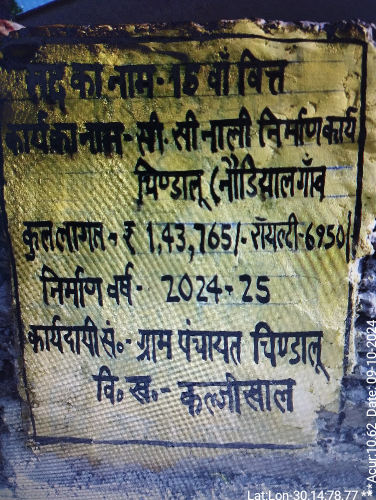 मद का नाम - 15 वां वित्त
कार्य का नाम - सी. सी नाली निर्माण कार्य
चिण्डालू (नौडियालगाँव
कुल लागत - ₹ 1,43,765/- रॉयल्टी-6950/-
निर्माण वर्ष - 2024-25
कार्यदायी सं०- ग्राम पंचायत चिण्डालू
वि० ख०- कल्जीखाल
Lat:Lon-30.14:78.77 **Acur:10.62, Date: 09-10-2024